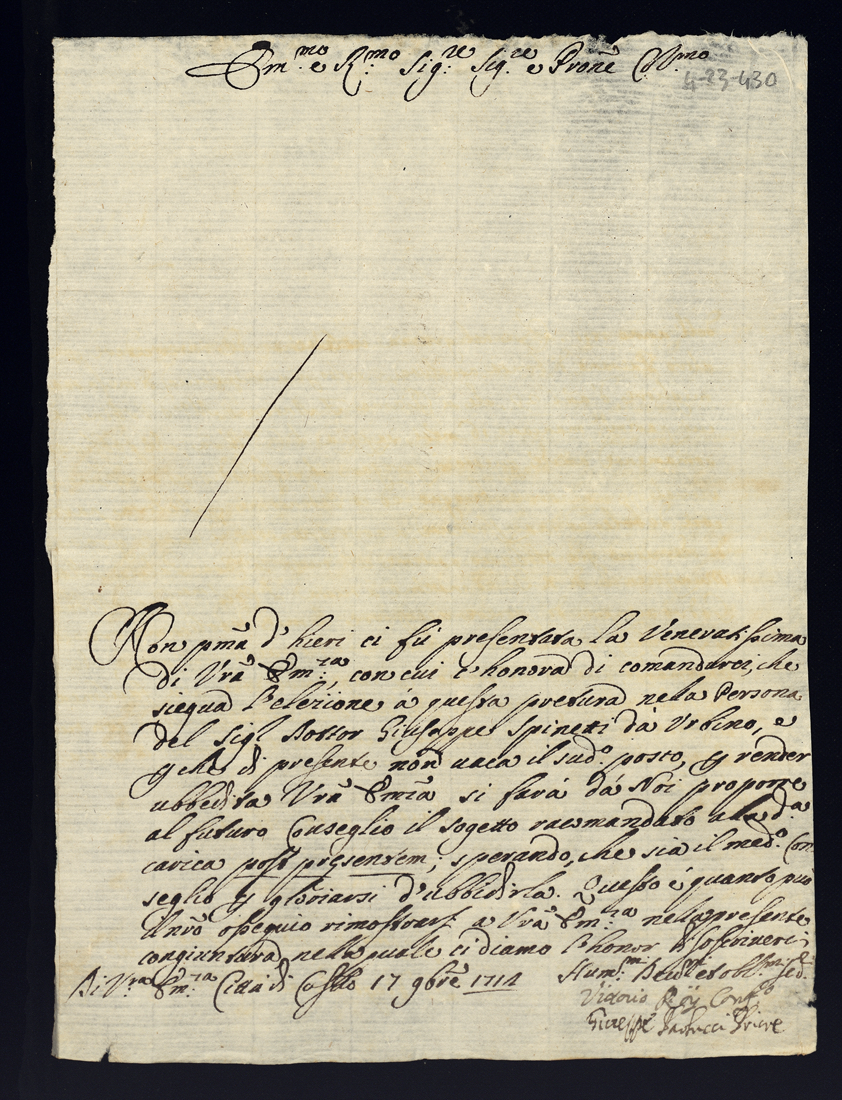 Em.mo e R.mo Sig.re Sig.re e Prone C
4-23-430
Non pma d'hieri ci fù presentata la Veneratissima
di Vra Em.za, con cui c'honora di comandarci, che
siegua l'elezione à questa pretura nella Persona
del Sig.r Dottor Giuseppe Spinetti dà Urbino, e
di presente non vaca il sud.o posto, p render
ubbedita Vra Emza si farà dà Noi proporre
al futuro Conseglio il sogetto racomandato alla d.a
carica post presentem; sperando, che sia il med.o Con
seglio p gloriarsi d'ubbidirla. Questo è quanto può
il nro ossequio rimostrarsi a Vra Em.za nella presente
congiuntura, nella quale ci diamo l'honor di soscriverci
Di V.ra Em.za Città di Castello 17 9bre 1714
Vittorio Conf.
Giuseppe Priore